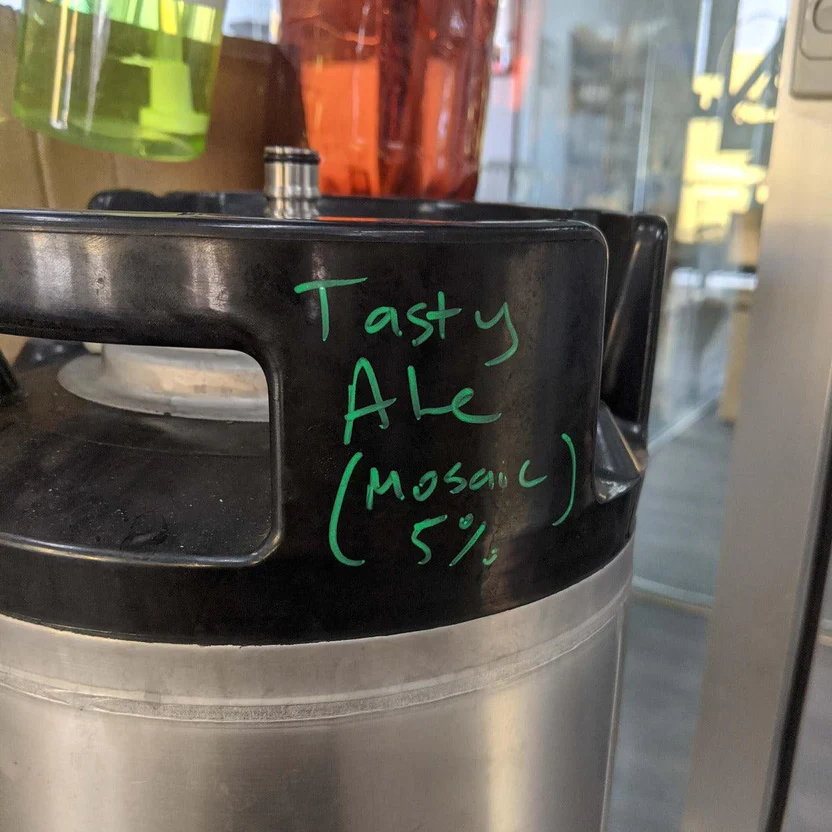 Tasty
Ale
(Mosaic)
5%